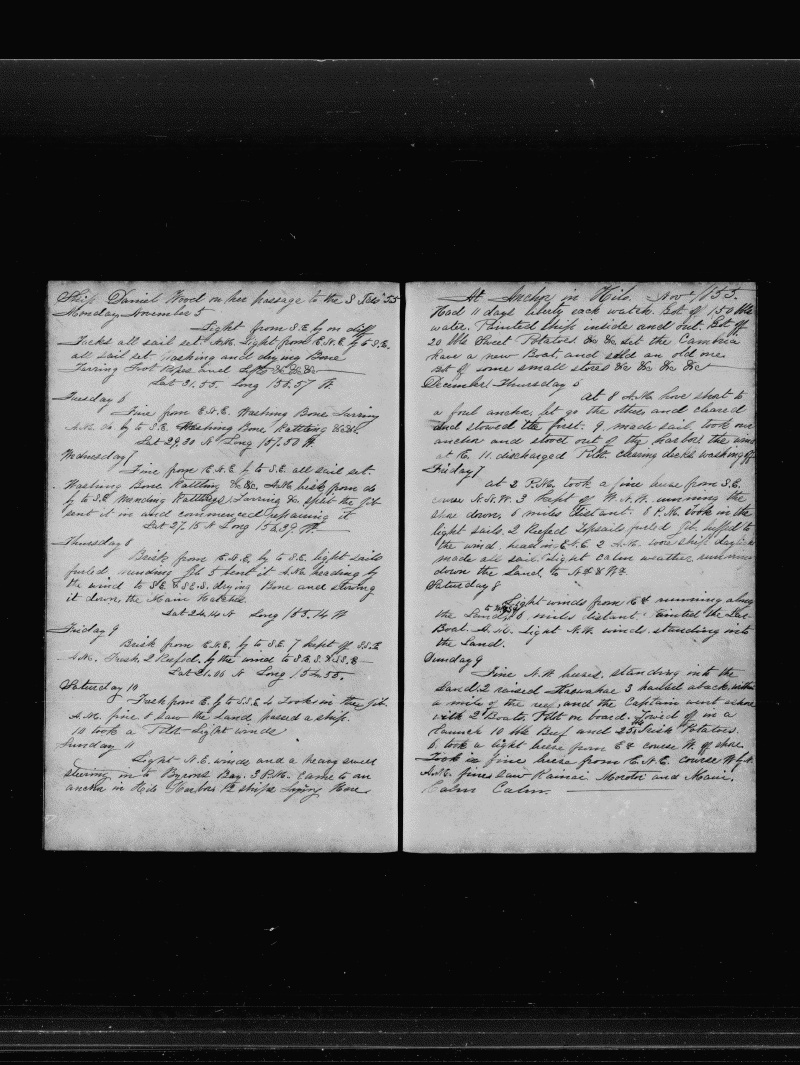 Ship Daniel Wood on her passage to the S 55
Monday November 5
Light from S.E. by on diff
Tacks all sail set. A.M. Light from E.N.E. by to S.E.
all sail set Washing and drying Bone
Tarring Foot Ropes and &c &c &c
Lat 31.55. Long 156.57 W.
Tuesday 6
Fine from E.N.E. Washing Bone Tarring
A.M. do by to S.E. Washing Bone Rattling &c &c.
Lat 29.30 N Long 157.50 W.
Wednesday 7
Fine from E.N.E. by to S.E. all sail set.
Washing Bone Rattling &c &c. A.M. brisk from do
by to S.E. Mending Rattlings, Tarring &c. split the Jib
sent it in and commenced repairing it
Lat 27.15 N Long 156.39 W.
Thursday 8
Brisk from E.N.E. by to S.E. light sails
furled mending Jib 5 bent it A.M. heading by
the wind to S.E & S.E.S. drying Bone and stowing
it down the Main Hatches.
Lat 24.14 N Long 155.14 W
Friday 9
Brisk from E.N.E. by to S.E. 7 kept off S.S.E
A.M. Fresh 2 Reefed. by the wind to S.E.S. & S.S.E
Lat 21.00 N Long 154.55.
Saturday 10
Fresh from E. by to S.S.E 4 Took in the Jib.
A.M. fine & saw the Land passed a ship.
10 took a Pilot Light winds
Sunday 11
Light N.E. winds and a heavy swell
steering in to Byrons Bay. 3 P.M. Came to an
anchor in Hilo Harbor 12 ships lying Here
At Anchor in Hilo. Nov 1855.
Had 11 days liberty each watch. Got off 150 bbls
water. Painted ship inside and out. Got off
20 bbls Sweet Potatoes &c &c. set the Cambria
have a new Boat, and sold an old one.
Got off some small stores &c &c &c &c
December Thursday 6
at 8 A.M. hove short to
a foul anchor let go the other and cleared
and stowed the first. 9 made sail, took our
anchor and stood out of the harbor the wind
at E. 11 discharged Pilot. clearing decks washing off
Friday 7
at 2 P.M. took a fine breeze from S.E.
course N.N.W. 3 kept of W.N.W. running the
shore down, 6 miles Distant. 6 P.M. took in the
light sails. 2 Reefed Topsails furled Jib, luffed to
the wind, head in E.N.E. 2 A.M. wore ship daylight
made all sail light calm weather, running
down the Land, to N & W
Saturday 8
Light winds from E & running along
the Land to 6 miles distant. Painted the Lar
Boat. A.M. Light N.W. winds standing into
the Land.
Sunday 9
Fine N.W. breeze. standing into the
Land. 2 raised 3 hauled aback within
a mile of the reef, and the Captain went ashore
with 2 Boats. Pilot on board. Towed off in a
Launch 10 bbls Beef and 25 bbls Irish Potatoes.
6 took a light breeze from E & course W. off shore.
Took in fine breeze from E.N.E. course W by N.
A.M. fine, saw Ranai Morotoi and Maui.
Calm Calm.